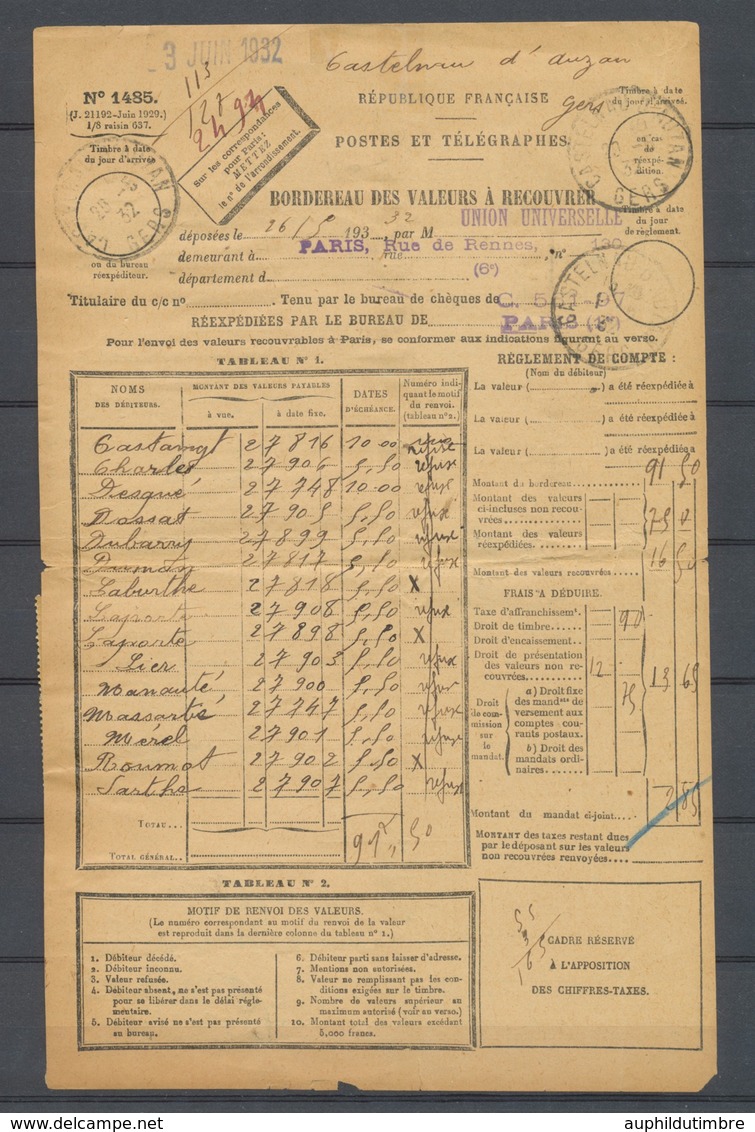 3 JUIN 1932
Castelnau d'Auzan
Gers
Nº 1485.
(J. 21192-Juin 1929.)
1/8 raisin 637.
113
127
2494
Sur les correspondances
pour Paris:
METTEZ
le nº de l'arrondissement.
RÉPUBLIQUE FRANÇAISE
POSTES ET TÉLÉGRAPHES
Timbre à date
du jour d'arrivée.
Timbre à date
du jour d'arrivée
en cas
de
réexpé-
dition.
GERS
BORDEREAU DES VALEURS À RECOUVRER
Timbre à date
du jour
de règlement.
déposées le 26/5 1932 par M UNION UNIVERSELLE
demeurant à PARIS, Rue de Rennes, rue nº 130
ou du bureau
réexpéditeur.
département d (6e)
Titulaire du c/c nº Tenu par le bureau de chèques de C. 531-97
RÉEXPÉDIÉES PAR LE BUREAU DE PARIS
Pour l'envoi des valeurs recouvrables à Paris, se conformer aux indications figurant au verso.
TABLEAU Nº 1.
NOMS
DES DÉBITEURS.
MONTANT DES VALEURS PAYABLES
à vue.
à date fixe.
DATES
D'ÉCHÉANCE.
Numéro indi-
quant le motif
du renvoi.
(tableau nº 2.)
Castaingt 27816 10.00 refuse
Charles 27906 5,50 refux
Desqué 27748 10.00 refux
Dossat 27905 5,50 refux
Dubarry 27899 5,50 refux
Dumas 27817 5,50 refux
Laburthe 27818 5,50 X
Laporte 27908 5,50 refux
Laporte 27898 5,50 X
Lier 27903 5,50 refux
Manauté 27900 5,50 refux
Massartié 27747 5,50 refux
Mérel 27901 5,50 refux
Roumat 27902 5,50 X
Sarthe 27907 5,50 refux
TOTAU...
TOTAL GÉNÉRAL.. 91 50
RÈGLEMENT DE COMPTE :
(Nom du débiteur)
La valeur ( ) a été réexpédiée à
La valeur ( ) a été réexpédiée à
La valeur ( ) a été réexpédiée à
Montant du bordereau 91 50
Montant des valeurs
ci-incluses non recou-
vrées 75
Montant des valeurs
réexpédiées.
Montant des valeurs recouvrées 16 50
FRAIS A DÉDUIRE.
Taxe d'affranchissemt.
Droit de timbre 90
Droit d'encaissement
Droit de présentation
des valeurs non re-
couvrées 12 13 65
Droit
de com-
mission
sur
le
mandat.
a) Droit fixe
des mandats de
versement aux
comptes cou-
rants postaux. 75
b) Droit des
mandats ordi-
naires
Montant du mandat ci-joint 2 85
MONTANT des taxes restant dues
par le déposant sur les valeurs
non recouvrées renvoyées.
TABLEAU Nº 2.
MOTIF DE RENVOI DES VALEURS.
(Le numéro correspondant au motif du renvoi de la valeur
est reproduit dans la dernière colonne du tableau nº 1.)
1. Débiteur décédé.
2. Débiteur inconnu.
3. Valeur refusée.
4. Débiteur absent, ne s'est pas présenté
pour se libérer dans le délai régle-
mentaire.
5. Débiteur avisé ne s'est pas présenté
au bureau.
6. Débiteur parti sans laisser d'adresse.
7. Mentions non autorisées.
8. Valeur ne remplissant pas les con-
ditions exigées sur le timbre.
9. Nombre de valeurs supérieur au
maximum autorisé (voir au verso.)
10. Montant total des valeurs excédant
5,000 francs.
CADRE RÉSERVÉ
À L'APPOSITION
DES CHIFFRES-TAXES.
auphildutimbre.com